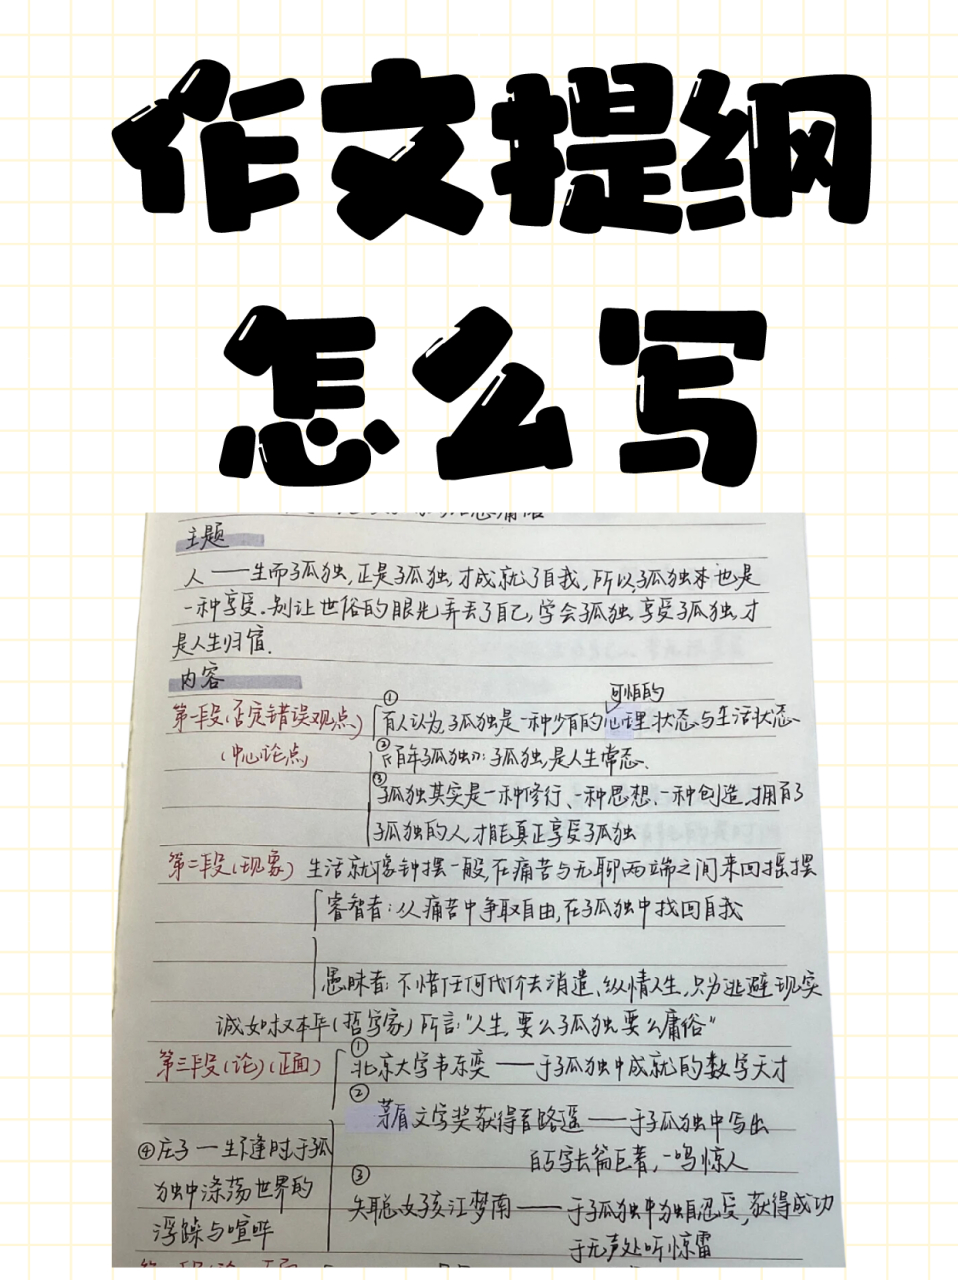 作文提纲
怎么写
主题
人——生而孤独,正是孤独,才成就了自我,所以,孤独本也是
一种享受.别让世俗的眼光弄丢了自己,学会孤独,享受孤独,才
是人生归宿.
内容
第一段(否定错误观点)
(中心论点)
可怕的
①有人认为,孤独是一种少有的心理状态与生活状态
②《百年孤独》:孤独,是人生常态、
③孤独其实是一种修行、一种思想、一种创造,拥有了
孤独的人,才能真正享受孤独
第二段(现象) 生活就像钟摆一般,在痛苦与无聊两端之间来回摇摆
睿智者:从痛苦中争取自由,在孤独中找回自我
愚昧者:不惜任何代价去消遣、纵情人生,只为逃避现实
诚如叔本华(哲学家)所言:“人生,要么孤独,要么庸俗”
第三段(论)(正面)
①北京大学韦东奕——于孤独中成就的数学天才
②茅盾文学奖获得者路遥——于孤独中写出
百万字长篇巨著,一鸣惊人
③失聪女孩江梦南——于孤独中独自忍受,获得成功
于无声处听惊雷
④庄子一生逢时于孤
独中涤荡世界的
浮躁与喧哗